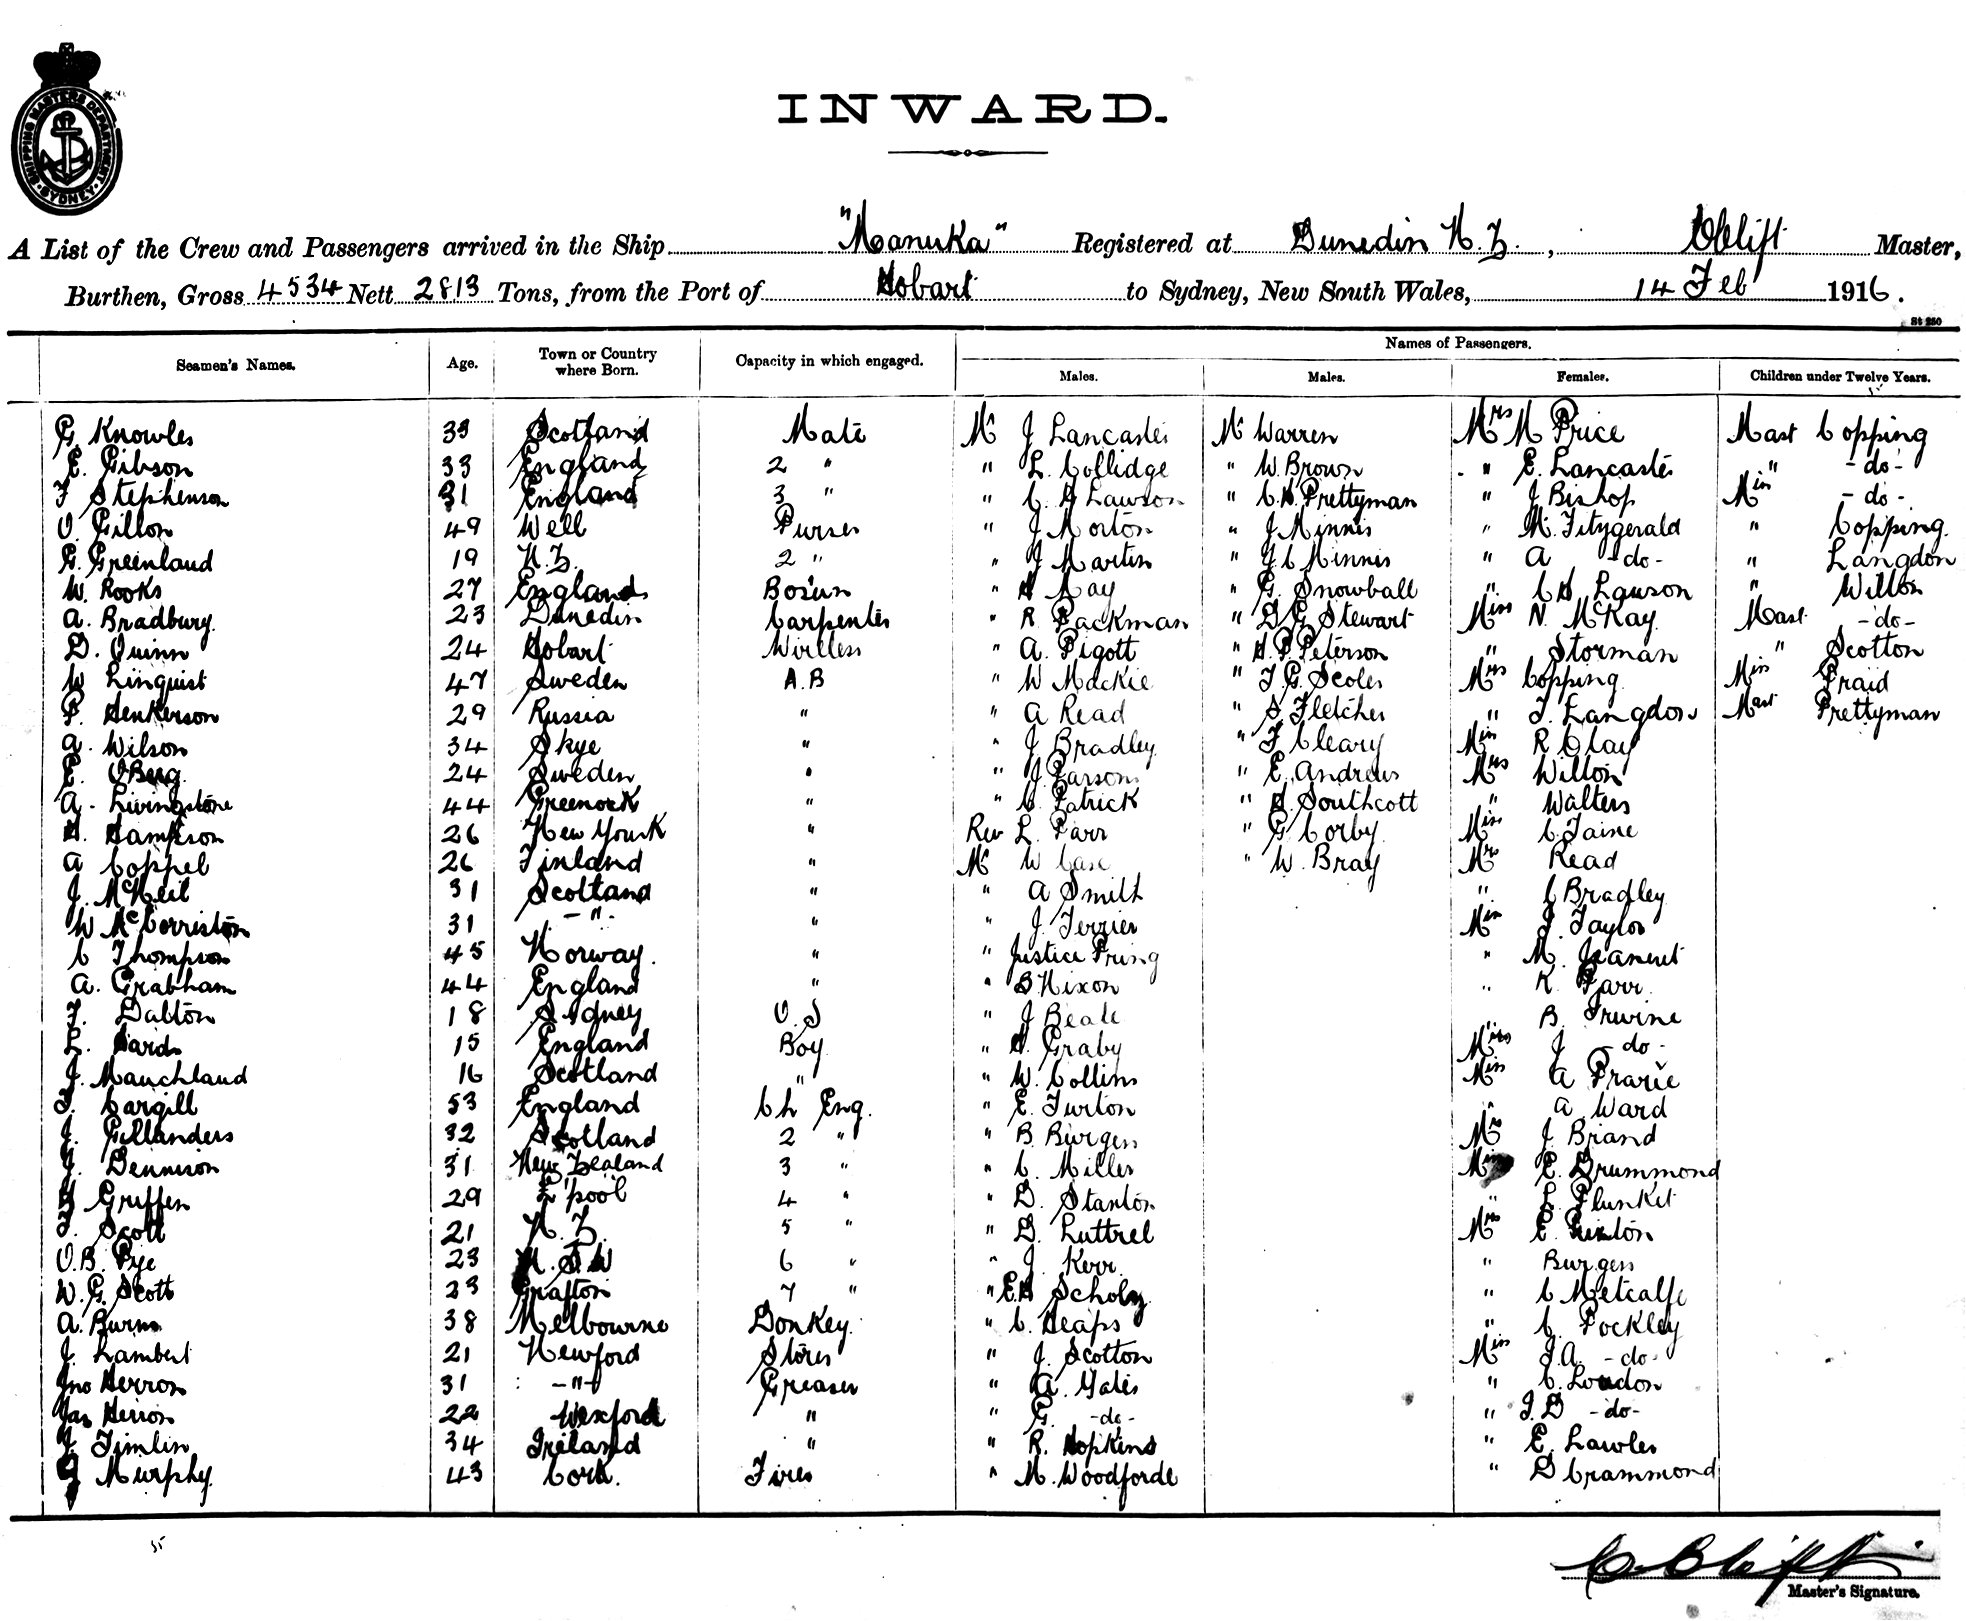 SHIPPING MASTERS DEPARTMENT
SYDNEY
INWARD.
A List of the Crew and Passengers arrived in the Ship "Manuka" Registered at Dunedin N.Z., C Clift Master,
Burthen, Gross 4534 Nett 2813 Tons, from the Port of Hobart to Sydney, New South Wales, 14 Feb 1916.
St 250
Names of Passengers.
Seamen's Names. Age. Town or Country where Born. Capacity in which engaged. Males. Males. Females. Children under Twelve Years.
G Knowles 33 Scotland Mate Mr J Lancaster Mr Warren Mrs M Price Mast Copping
E. Gibson 33 England 2 " " L. Collidge " W. Brown " E. Lancaster " -do-
F Stephenson 31 England 3 " " C G Lawson " C.H. Prettyman " J Bishop Miss -do-
O. Gillon 49 Well Purser " J Morton " J Minnis " M. Fitzgerald " Copping
G. Greenland 19 N.Z. 2 " " J Martin " J C Minnis " A -do- " Langdon
W. Rooks 27 England Bosun " H May " G. Snowball " C H Lawson " Wilton
A. Bradbury 23 Dunedin Carpenter " R Packman " D.G. Stewart Miss N. McKay Mast -do-
D. Quinn 24 Hobart Wireless " A. Pigott " H. P. Peterson " Storman " Scotton
W Linquist 47 Sweden A.B " W Mackie " T G Scoles Mrs Copping Miss Praid
P. Henkerson 29 Russia " " A Read " S Fletcher " T. Langdon Mast Prettyman
A. Wilson 34 Skye " " J Bradley " F Cleary Miss R Clay
E. OBerg 24 Sweden " " J Parsons " E. Andrews Mrs Wilton
A. Livingstone 44 Greenock " " C Patrick " H. Southcott " Walters
H. Sampson 26 New York " Rev L. Parr " G Corby Miss C Taine
A Coppel 26 Finland " Mr W Case " W. Bray Mrs Read
J. McNeil 31 Scotland " " A Smith " C Bradley
W McCorriston 31 -"- " " J. Terrier Miss J Taylor
C Thompson 45 Norway. " " Justice Pring " M.
A. Grabham 44 England " " B Nixon " K. Parr
F. Dalton 18 Sydney O.S " J Beale " B. Irwine
L. Sards 15 England Boy " H. Graby Mrs J -do-
J. Mauchland 16 Scotland " " W. Collins Miss A Prarie
F. Cargill 53 England Ch Eng. " E. Turton " A Ward
J. Gillanders 32 Scotland 2 " " B. Burgess Mrs J Brand
J. Dennison 31 New Zealand 3 " " C. Miller Miss E. Drummond
H Griffen 29 L'pool 4 " " D. Stanton " L. Plunket
F. Scott 21 N.Z. 5 " " D. Luttrel Mrs E. Turton
O.B. Pye 23 N.S.W 6 " " J. Kerr " Burgess
W.G. Scott 23 Grafton 7 " " E.H Scholz " C Metcalfe
A. Burns 38 Melbourne Donkey " C. Heaps " C. Pockley
J. Lambert 21 Newford Stores " J. Scotton Miss J.A. -do-
Jno Herron 31 -"- Greaser " A. Yates " C. London
Jas Herron 22 Wexford " " G. -do- " J.D -do-
J. Timlin 34 Ireland " " R. Hopkins " E. Lawles
J Murphy 43 Cork. Fires " M. Woodforde " D Crammond
35
C. Clift
Master's Signature.